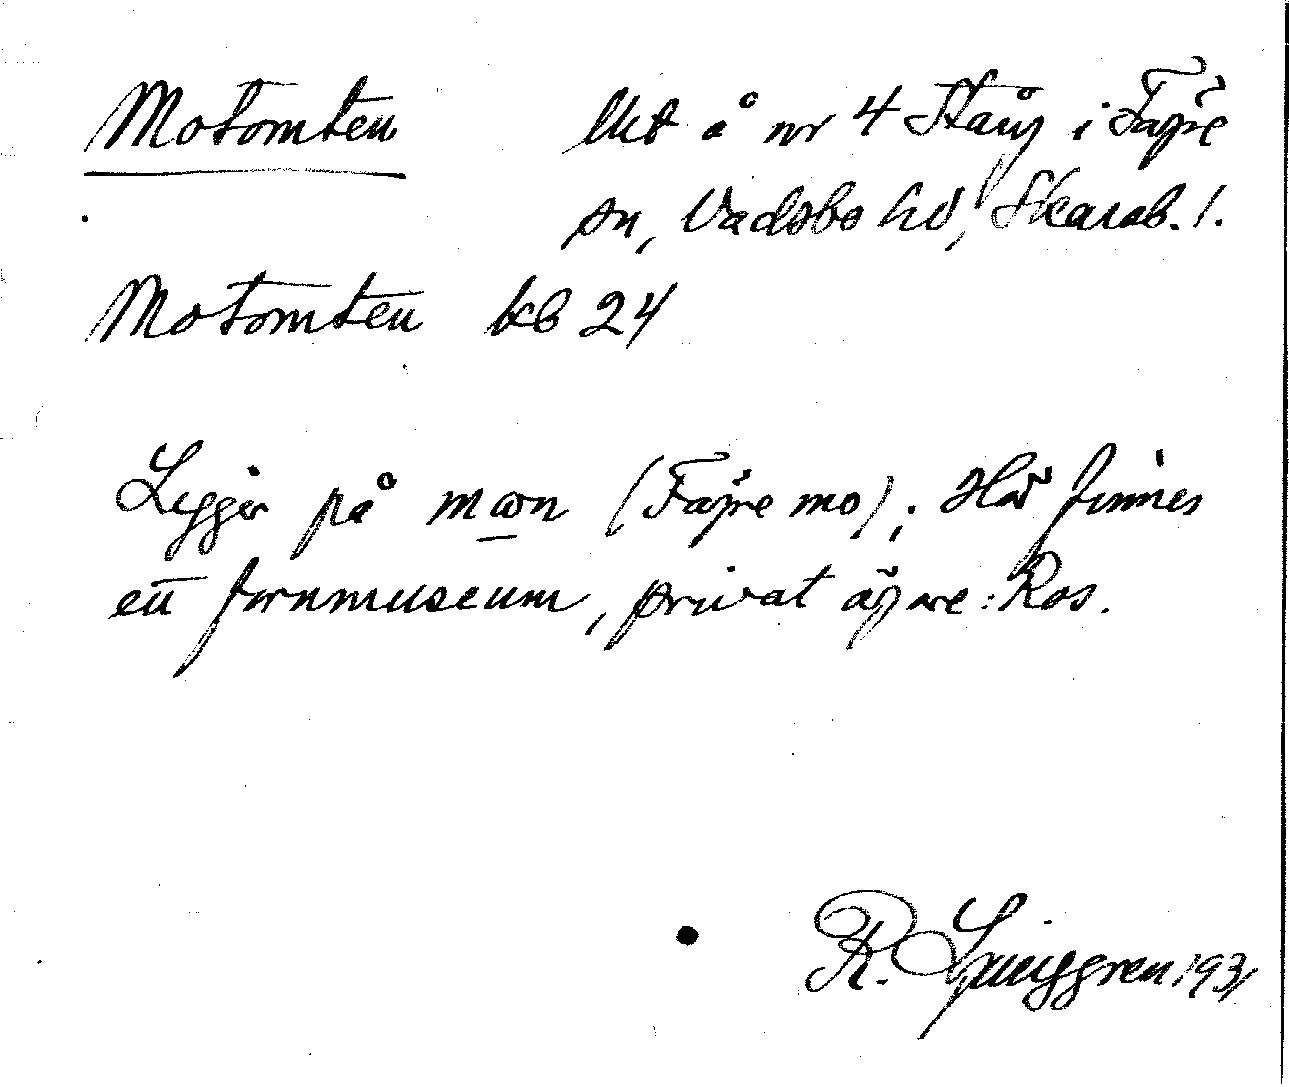 Motomten lht å nr 4 Stång i Fägre
sn, Vadsbo hd, Skarab. l.
Motomten kb 24
Ligger på mɷn (Fägre mo); Här finnes
ett fornmuseum, privat ägare: Ros.
R. Ljunggren 1931